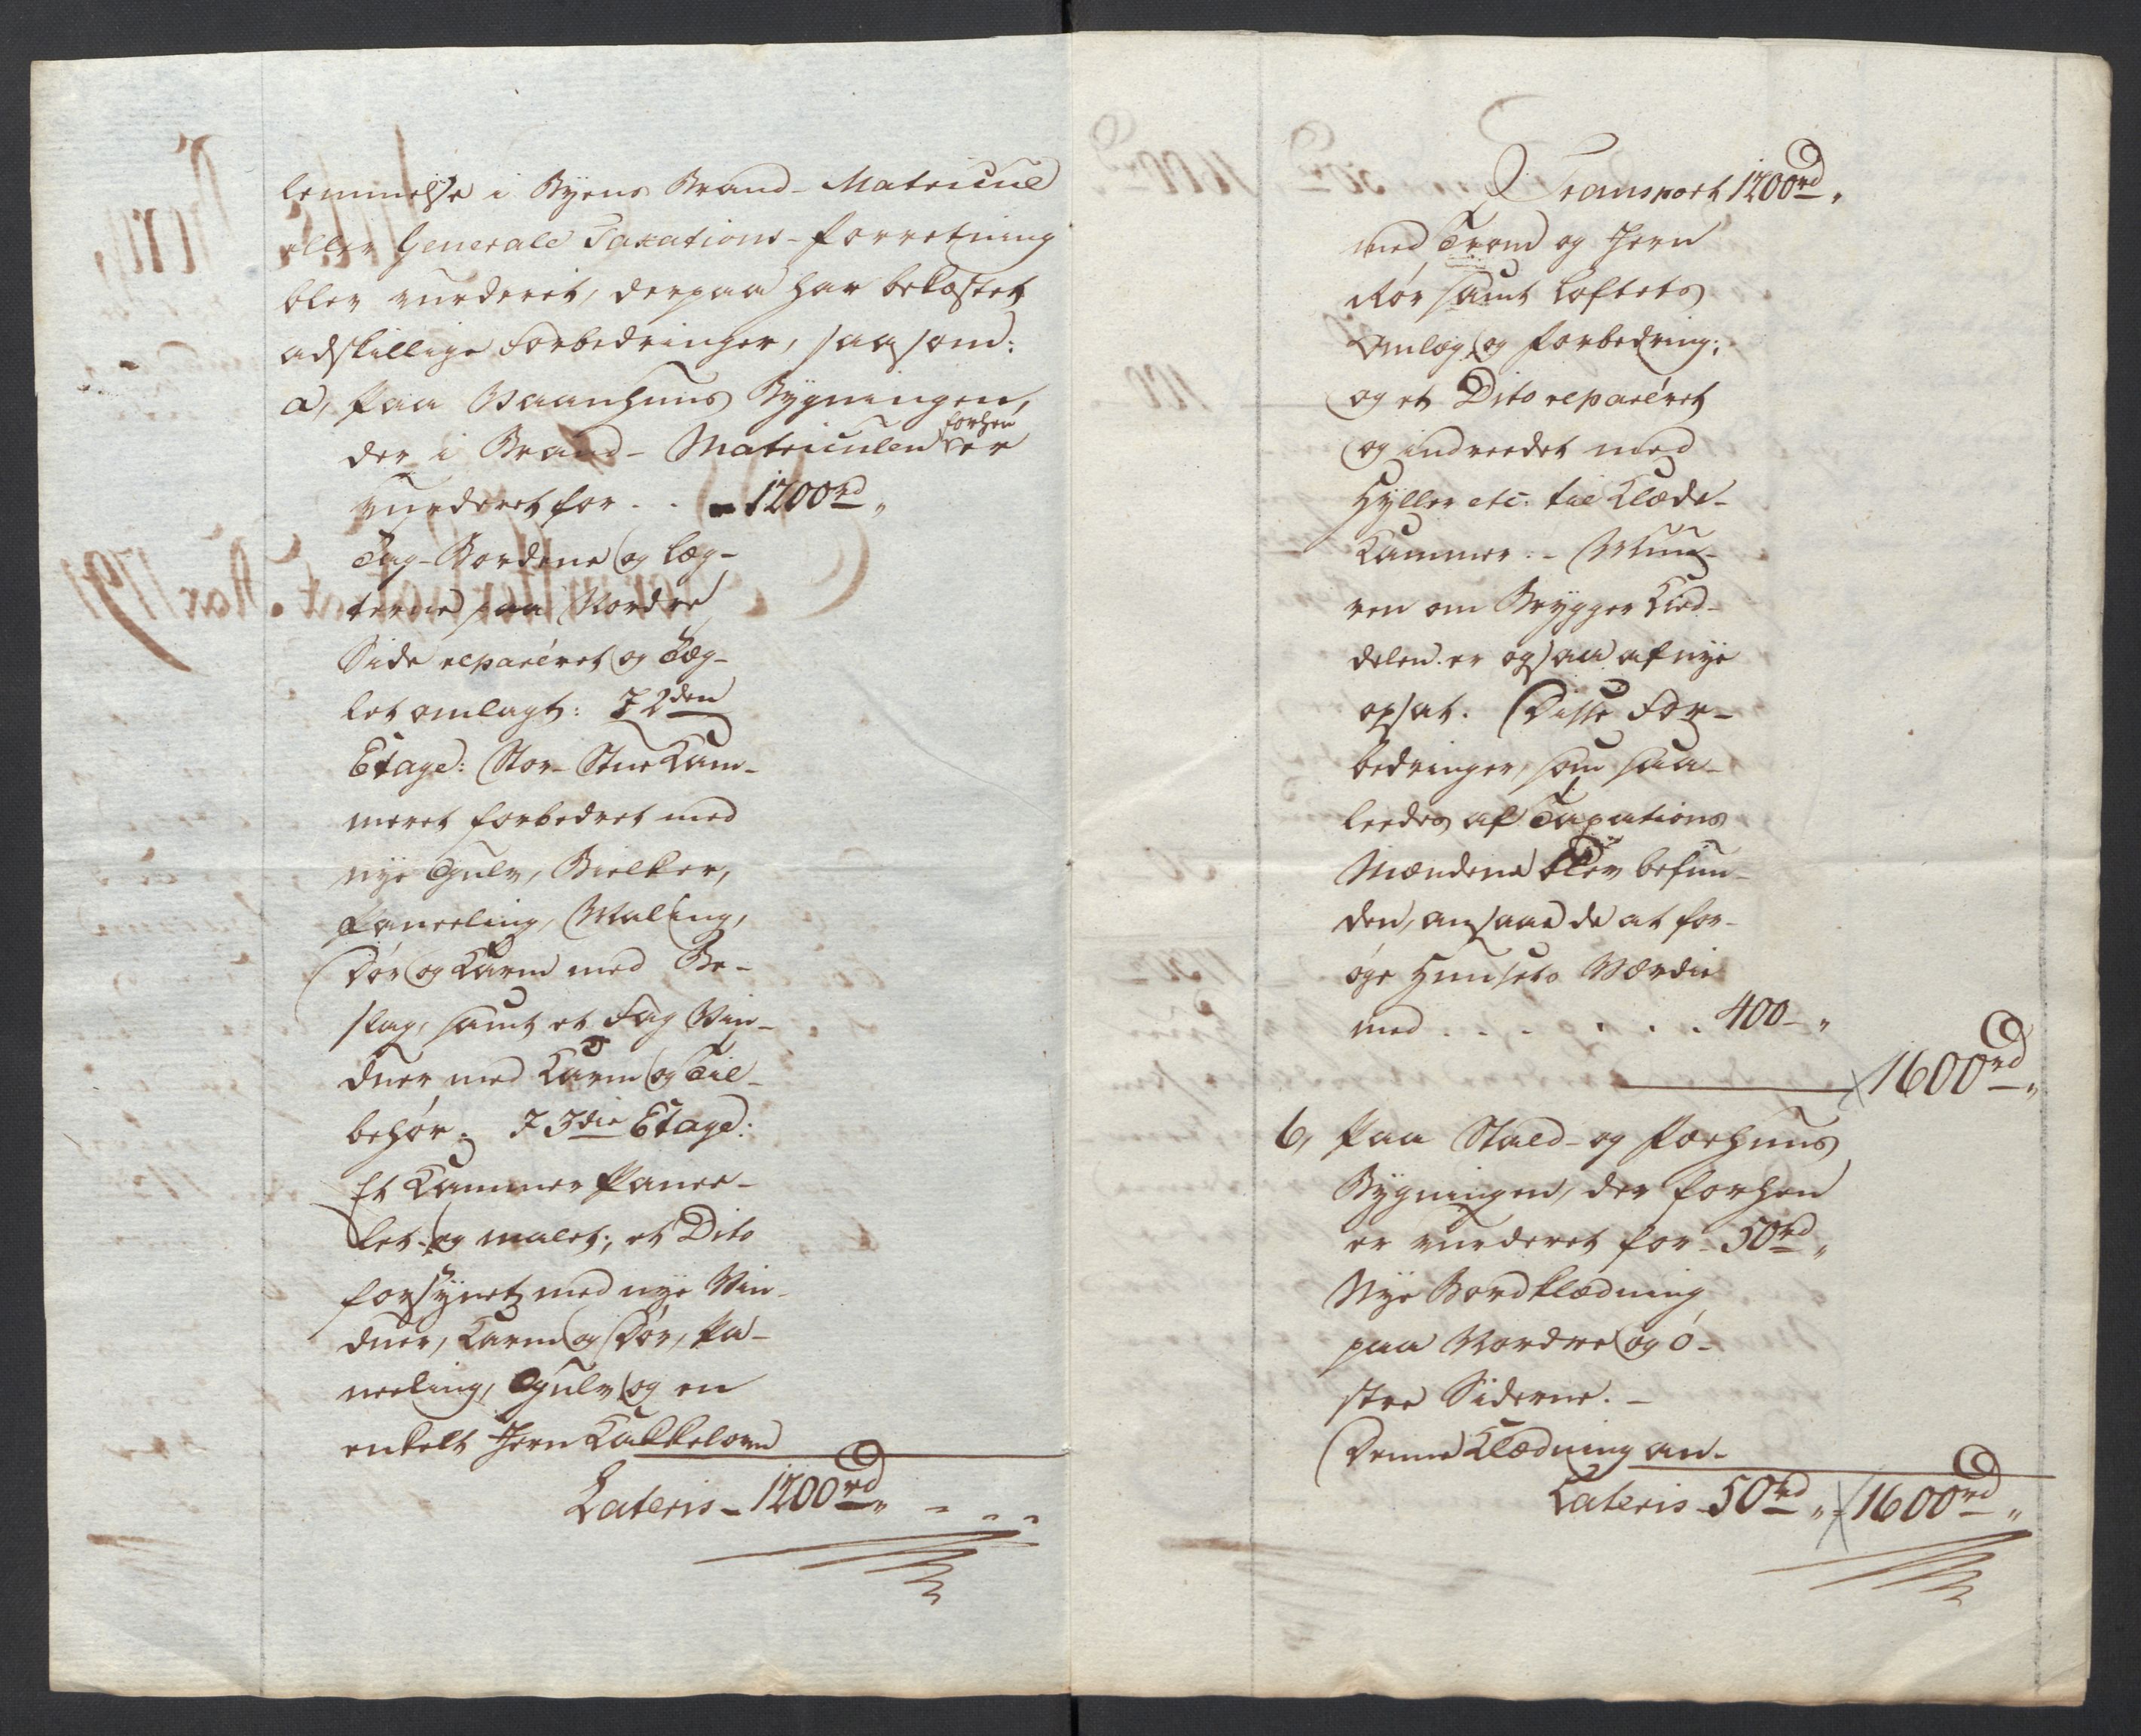 lemmelse i Byens Brand-Matricul
eller Generale Taxations-Forretning
blev vurderet, derpaa har bekostet
adskillige Forbedringer, saasom:
a, Paa Vaanhuus Bygningen,
der i Brand-Matriculen forhen er
vurderet for . . - 1200rd „
Tag-Bordene og Læg-
terne paa Nordre
Side reparéret og Tæg-
let omlagt: I 2den
Etage: Stor-Stue Kam-
meret forbedret med
nye Gulv, Bielker,
Paneeling, Maling,
Dør og Karm med Be-
slag, samt et Fag Vin-
duer med Karm og Til-
behør; I 3die Etage:
Et Kammer Panee-
let og malet; et Dito
forsynet med nye Vin-
duer, Karm og Dør, Pa-
neeling, Gulv og en
enkelt Jern Kakkelovn
Lateris - 1200rd „ - „ „
Transport 1200rd „
med Trom og Jern
Rør samt Loftets
Omlæg og Forbedring;
og et Dito reparéret
og indreedet med
Hyller etc: til Klæde-
Kammer: - Muu-
ren om Brygger Kied-
delen er ogsaa af nye
opsat. Disse For-
bedringer, som saa-
leedes af Taxations
Mændene blev befun-
den, ansaae de at for-
øge Huusets Værdie
med . . . . . . . 400 - „
1600rd „
b, Paa Stald- og Færhuus
Bygningen, der forhen
er vurderet for - 50rd „
Nye Bordklædning
paa Nordre og Ø-
stre Siderne. -
Denne Klædning an-
Lateris - 50rd „ - 1600rd „